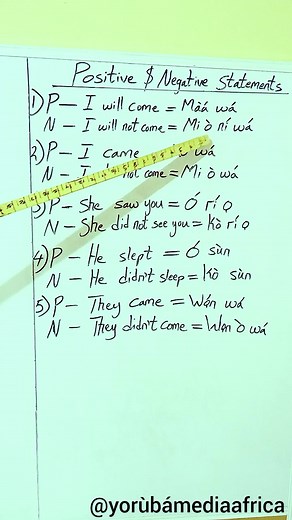 Positive $ Negative Statements
1) P – I will come = Màá wá
N – I will not come = Mi ò ní wá
2) P – I came wá
N – I not come = Mi ò wá
3) P – She saw you = Ó rí ọ
N – She did not see you = kò rí ọ
4) P – He slept = Ó sùn
N – He didn't sleep = Kò sùn
5) P – They came = Wọ́n wá
N – They didn't come = Wọn ò wá
@yorùbámediaafrica